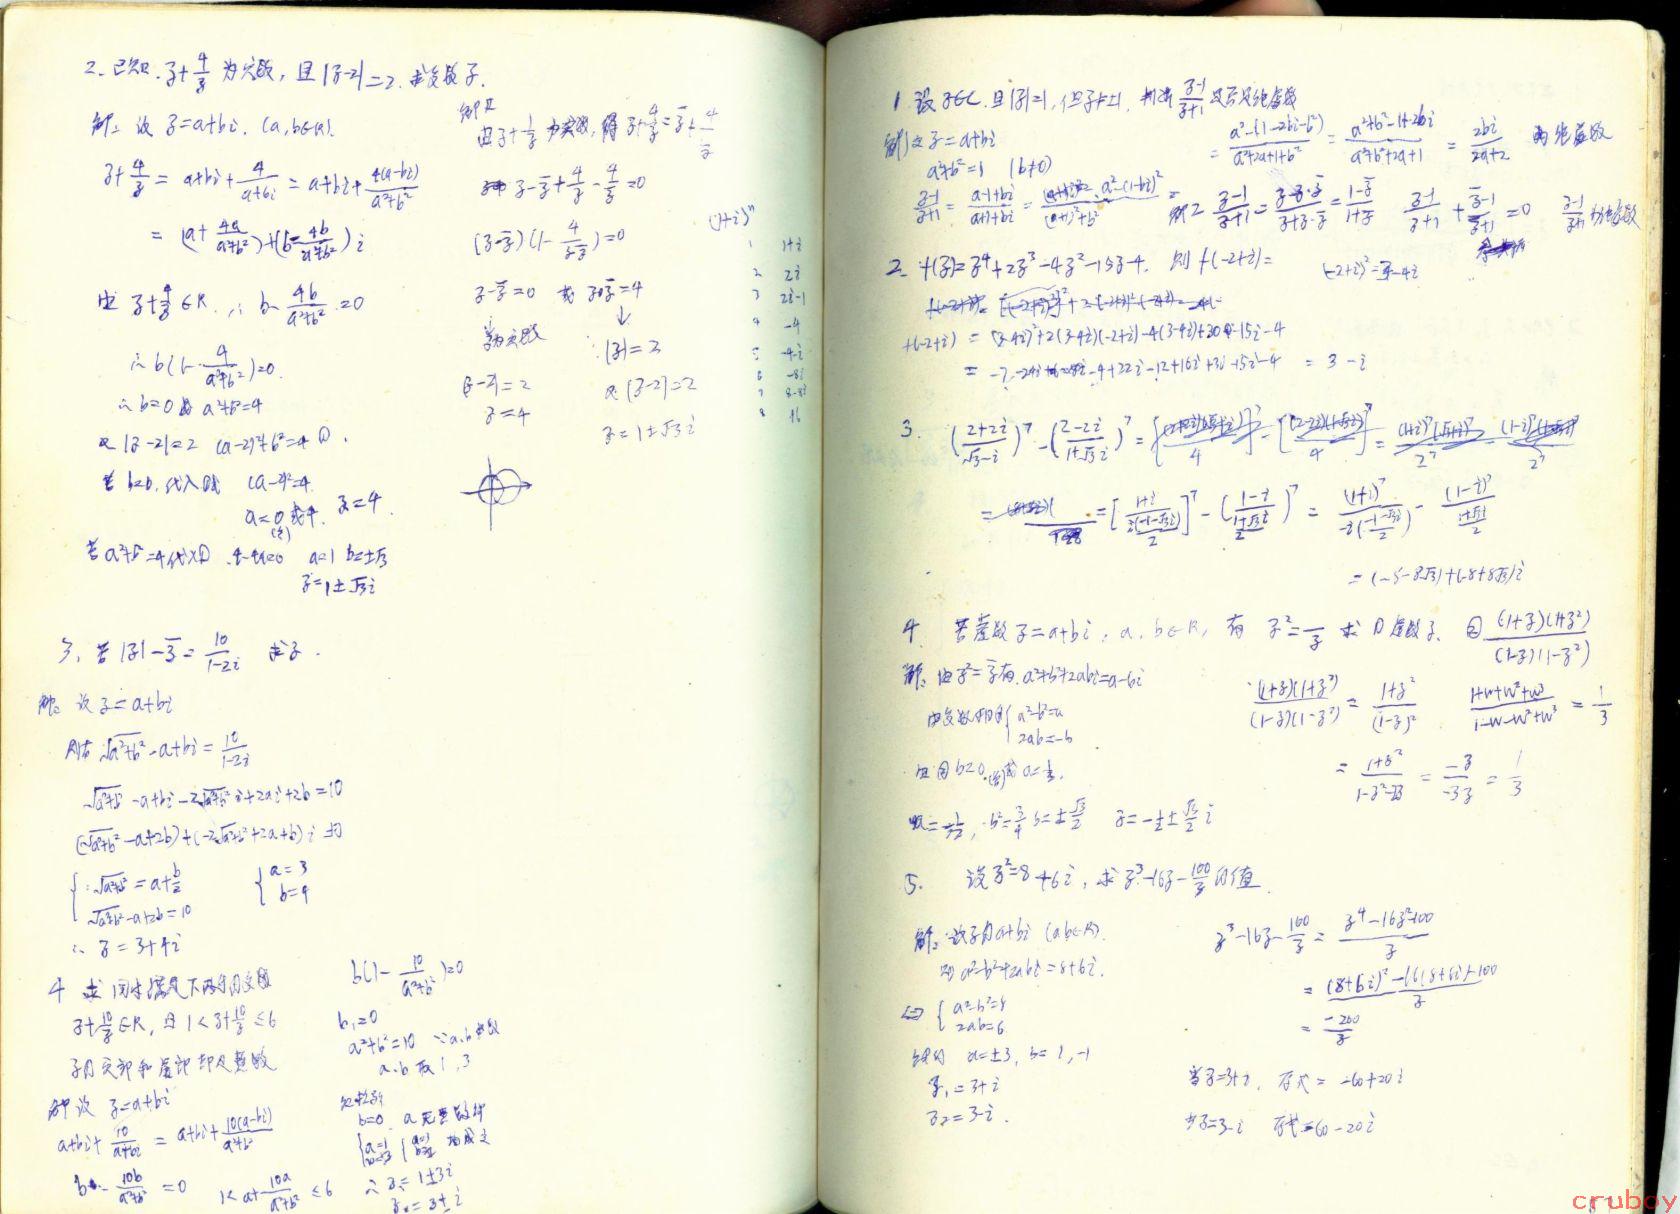 2. 已知 z+4/z 为实数, 且 |z-2|=2. 求复数 z.
解: 设 z=a+bi. (a,b∈R).
z+4/z = a+bi+4/(a+bi) = a+bi+4(a-bi)/(a²+b²)
= (a+4a/(a²+b²))+(b-4b/(a²+b²))i
由 z+4/z ∈R. ∴ b-4b/(a²+b²)=0
∴ b(1-4/(a²+b²))=0.
∴ b=0 或 a²+b²=4
又 |z-2|=2 (a-2)²+b²=4 ①.
若 b=0. 代入 (a-2)²=4.
a=0 或 4. z=4.
(舍)
若 a²+b²=4 代入① 4-4a=0 a=1 b=±√3
z=1±√3i
解2
由 z+4/z 为实数, 得 z+4/z=z̄+4/z̄
z-z̄+4/z-4/z̄=0
(z-z̄)(1-4/(z·z̄))=0
z-z̄=0 或 z·z̄=4
↓
z为实数 |z|=2
|z-2|=2 又 |z-2|=2
z=4 z=1±√3i
(1+i)ⁿ
1 1+i
2 2i
3 2i-1
4 -4
5 -4-i
6 -8i
7 8-8i
8 16
3, 若 |z|-z̄=10/(1-2i) 求 z.
解: 设 z=a+bi
则有 √(a²+b²)-a+bi=10/(1-2i)
√(a²+b²)-a+bi-2√(a²+b²)i+2ai+2b=10
(√(a²+b²)-a+2b)+(-2√(a²+b²)+2a+b)i
{ √(a²+b²)=a+b/2
√(a²+b²)-a+2b=10
{ a=3
b=4
∴ z=3+4i
4 求同时满足下两条的复数
z+10/z∈R, 且 1<z+10/z≤6
z的实部和虚部都是整数
解 设 z=a+bi
a+bi+10/(a+bi) = a+bi+10(a-bi)/(a²+b²)
b-10b/(a²+b²)=0 1<a+10a/(a²+b²)≤6
b(1-10/(a²+b²))=0
b₁=0
a²+b²=10 ∵a.b 整数
a.b 取 1, 3
b=0. a 无整数解
∴ z₁=1±3i
z₂=3±i
1. 设 z∈C. 且 |z|=1, 但 z≠±1, 判断 (z-1)/(z+1) 是否是纯虚数
解1 设 z=a+bi
a²+b²=1 (b≠0)
(z-1)/(z+1) = (a-1+bi)/(a+1+bi) = a²-(1-bi)²/((a+1)²+b²) =
= (a²-(1-2bi-b²))/(a²+2a+1+b²) = (a²+b²-1+2bi)/(a²+b²+2a+1) = 2bi/(2a+2) 为纯虚数
解2 (z-1)/(z+1)=(z-z·z̄)/(z+z·z̄)=(1-z̄)/(1+z̄) (z-1)/(z+1)+(z̄-1)/(z̄+1)=0 (z-1)/(z+1) 为纯虚数
2. f(z)=z⁴+2z³-4z²-15z-4. 则 f(-2+i)= (-2+i)²=3-4i
f(-2+i) = (3-4i)²+2(3-4i)(-2+i)-4(3-4i)+30-15i-4
= -7-24i-4+22i-12+16i+30-15i-4 = 3-i
3. ((2+2i)/(√3-i))⁷-((2-2i)/(1+√3i))⁷
= [(1+i)/(i(-1-√3i)/2)]⁷-((1-i)/((1+√3i)/2))⁷ = (1+i)⁷/(-i((-1-√3i)/2))-(1-i)⁷/((1+√3i)/2)
= (-8-8√3)+(-8+8√3)i
4 若虚数 z=a+bi, a, b∈R, 有 z²=z̄ 求 ①虚数 z. ② (1+z)(1+z²)/((1-z)(1-z²))
解: 由 z²=z̄ 有 a²-b²+2abi=a-bi
由复数相等 { a²-b²=a
2ab=-b
由② b=0.(舍) 或 a=-½.
a=-½, b²=¾ b=±√3/2 z=-½±√3/2 i
(1+z)(1+z²)/((1-z)(1-z²)) = (1+z²)/(1-z)² (1+w+w²+w³)/(1-w-w²+w³) = 1/3
= (1+z²)/(1+z²-2z) = -z/-3z = 1/3
5. 设 z²=8+6i, 求 z³-16z-100/z 的值.
解: 设 z为 a+bi (a,b∈R).
即 a²-b²+2abi=8+6i.
⇔ { a²-b²=8
2ab=6
解得 a=±3, b=1,-1
z₁=3+i
z₂=3-i.
z³-16z-100/z = (z⁴-16z²-100)/z
= ((8+6i)²-16(8+6i)-100)/z
= -200/z
当 z=3+i, 原式= -60+20i
当 z=-3-i 原式=60-20i
cruboy